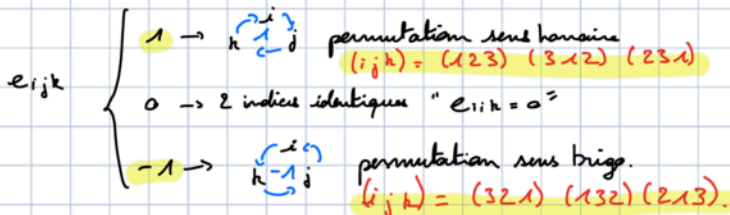 1 → i k 1 j permutation sens horaire
(ijk) = (123) (312) (231)
eijk 0 → 2 indices identiques "eiik = 0"
-1 → i k -1 j permutation sens trigo.
(ijk) = (321) (132) (213).